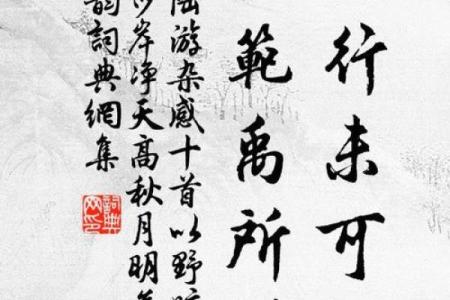 行未可
範禹所
陆游杂感十首以野旷
沙岸净天高秋月明为
韵詞典網集
詞典
网印